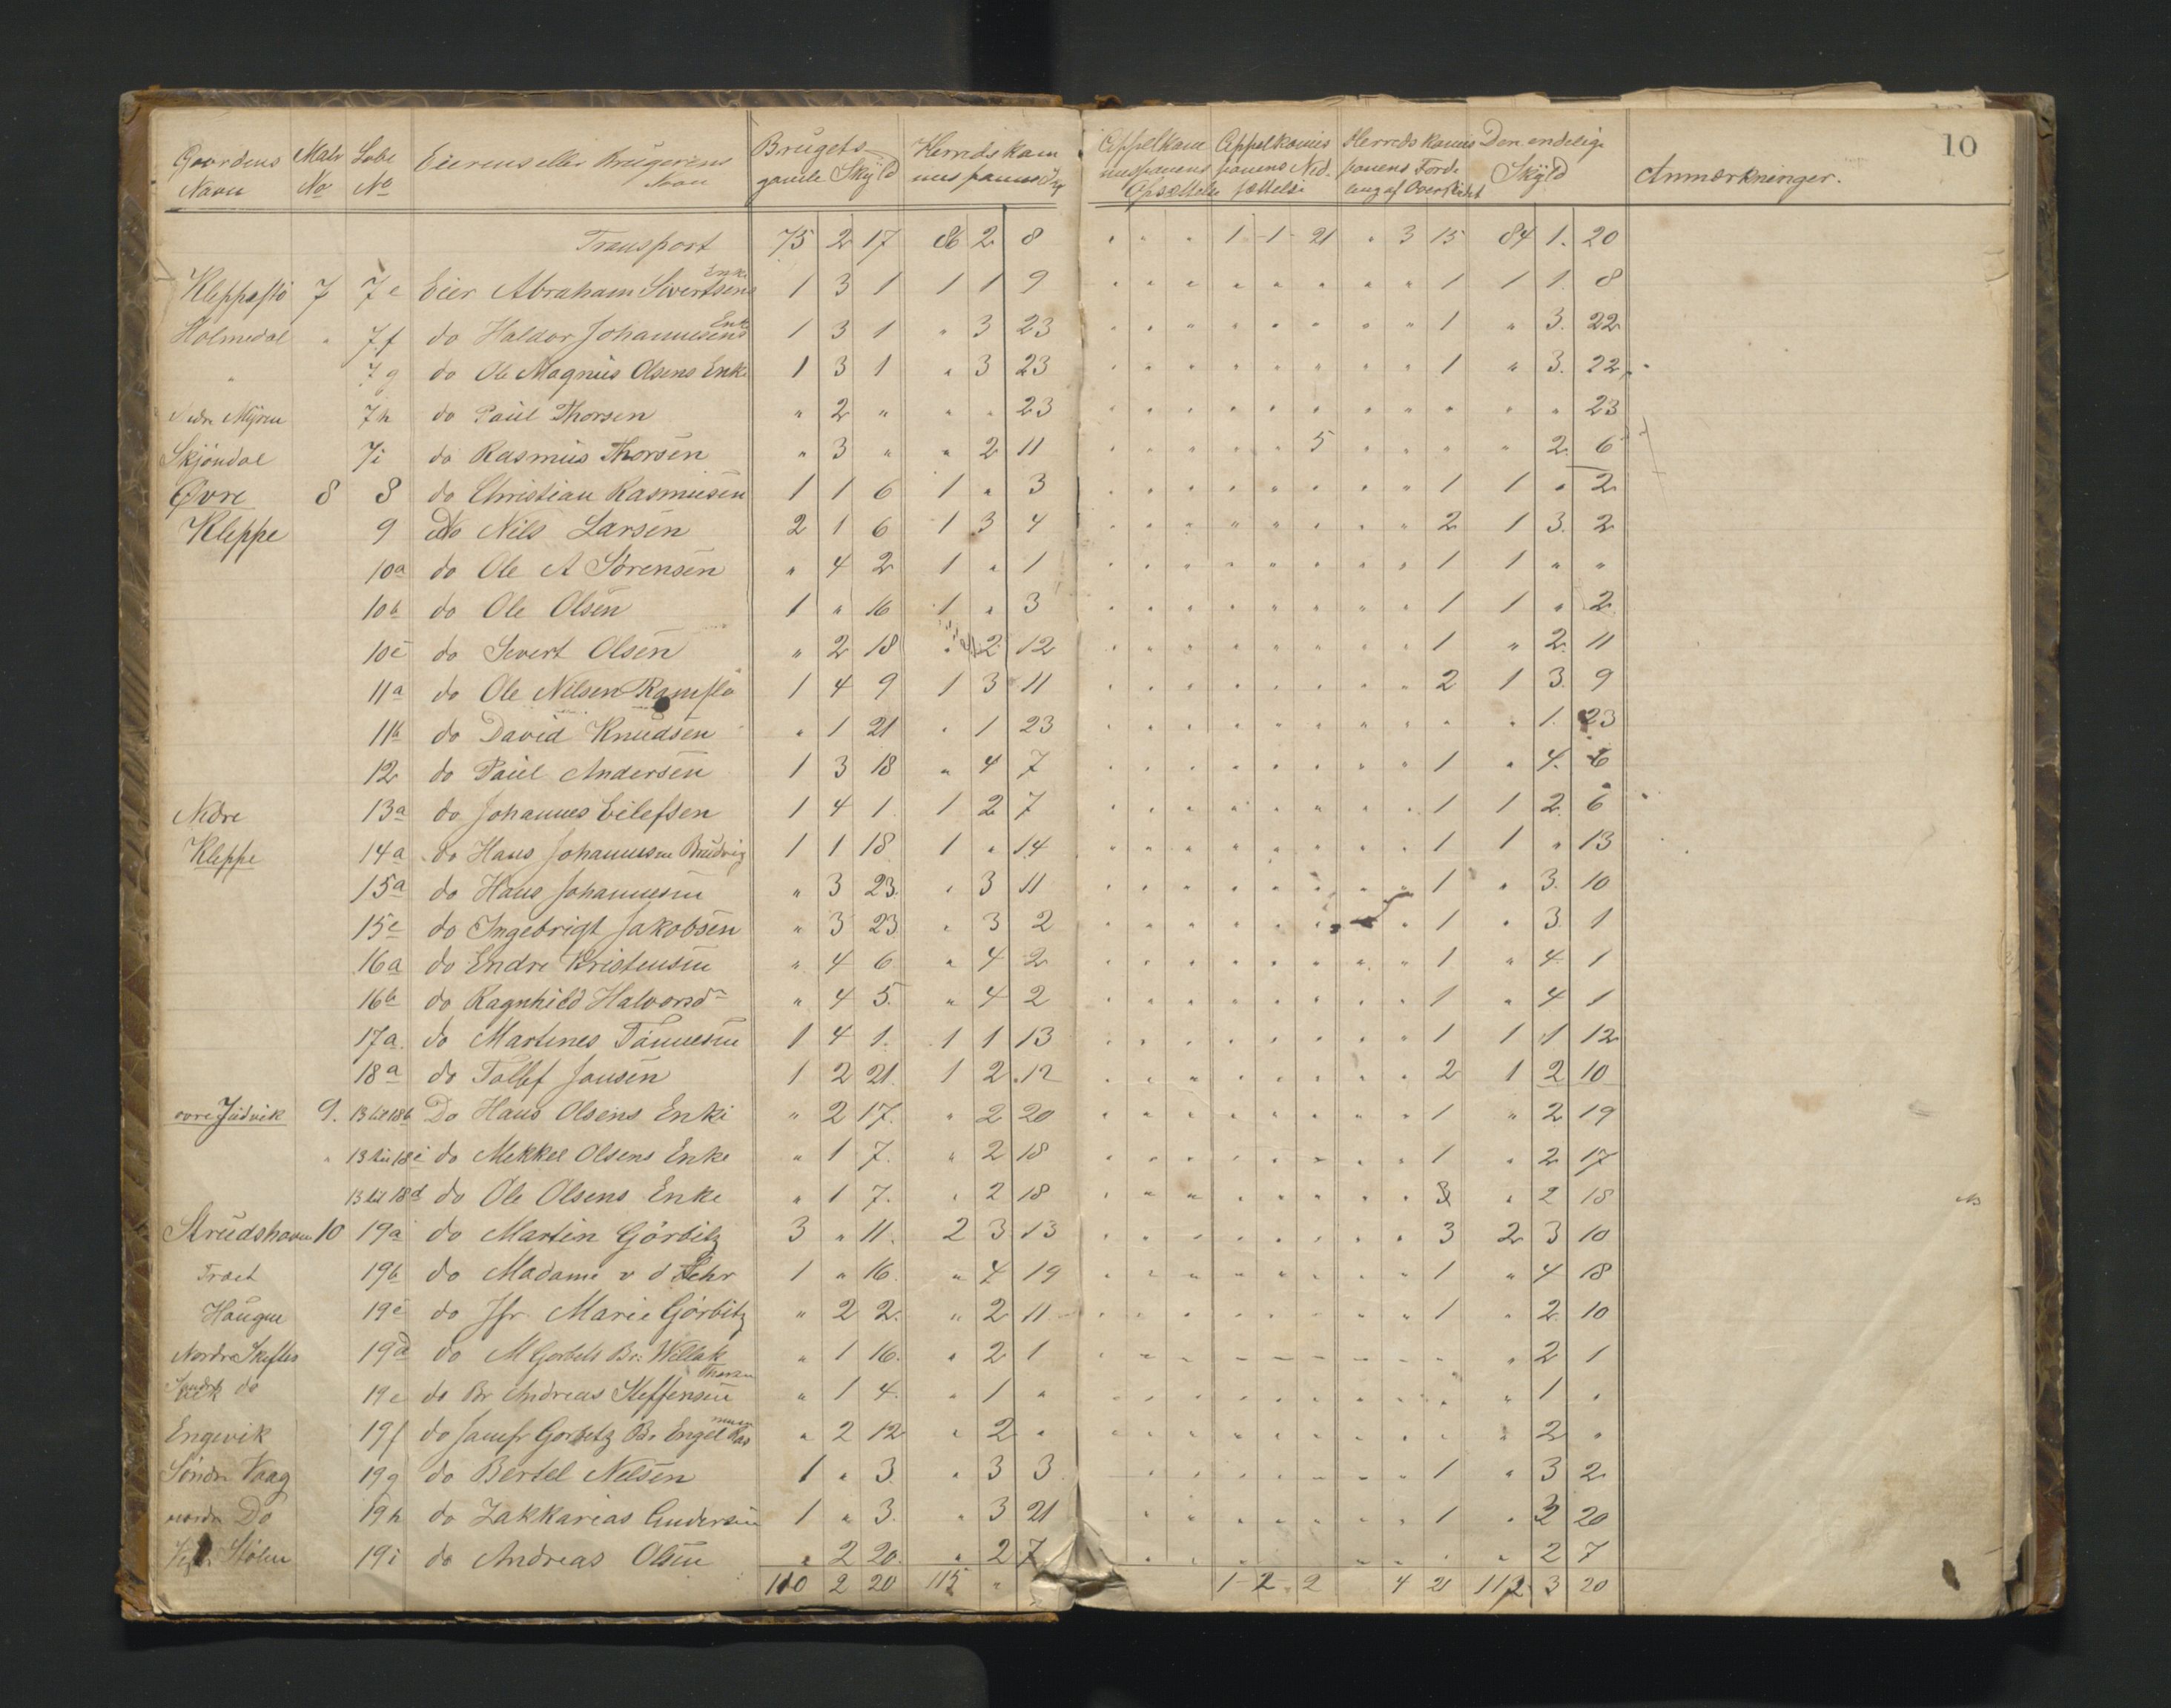 10
Gaardens Navn | Matr No | Løbe No | Eierens eller Brugerens Navn | Brugets gamle Skyld | Herredskommispanens | Appelkommispanens Opsættelse | Appelkommispanens Nedsættelse | Herredskommispanens Fordeling af Overskudt | Den endelige Skyld | Anmærkninger.
Transport 75 2 17 86 2 8 " " " 1 1 21 " 3 15 84 1. 20
Kleppestø 7 7e Eier Abraham Sivertsens Enke 1 3 1 1 1 9 " " " " " " " " 1 1 1. 8
Holmedal " 7f do Haldor Johannesens Enke 1 3 1 " 3 23 " " " " " " " " 1 " 3. 22
" 7g do Ole Magnus Olsens Enke 1 3 1 " 3 23 " " " " " " " " 1 " 3. 22
Nedre Myren 7h do Paul Thorsen " 2 " " " 23 " " " " " " " " " " " 23
Skjøndal 7i do Rasmus Thorsen " 3 " " 2 11 " " " " " 5 " " " " 2. 6
Øvre 8 8 do Christian Rasmusen 1 1 6 1 " 3 " " " " " " " " 1 1 " 2
Kleppe 9 do Nils Larsen 2 1 6 1 3 4 " " " " " " " " 2 1 3. 2
10a do Ole A Sørensen " 4 2 1 " 1 " " " " " " " " 1 1 " "
10b do Ole Olsen 1 " 16 1 " 3 " " " " " " " " 1 1 " 2
10c do Sivert Olsen " 2 18 " 2 12 " " " " " " " " 1 " 2. 11
11a do Ole Nilsen Ramslø 1 4 9 1 3 11 " " " " " " " " 2 1 3. 9
11b do David Knudsen " 1 21 " 1 23 " " " " " " " " " " 1. 23
12 do Paul Andersen 1 3 18 " 4 7 " " " " " " " " 1 " 4. 6
Nedre 13a do Johannes Eilefsen 1 4 1 1 2 7 " " " " " " " " 1 1 2. 6
Kleppe 14a do Hans Johannesen Brudvig 1 1 18 1 " 14 " " " " " " " " 1 1 " 13
15a do Hans Johannesen " 3 23 " 3 11 " " " " " " " " 1 " 3. 10
15c do Ingebrigt Jakobsen " 3 23 " 3 2 " " " " " " " " 1 " 3. 1
16a do Endre Kristensen " 4 6 " 4 2 " " " " " " " " 1 " 4 1
16b do Ragnhild Halvorsd " 4 5. " 4 2 " " " " " " " " 1 " 4 1
17a. do Martines Tønnesen 1 4 1. 1 1 13 " " " " " " " " 1 1 1 12
18a do Tollef Jansen 1 2 21. 1 2 12 " " " " " " " " 2 1 2 10
øvre Judvik 9. 13 til 18b Do Hans Olsens Enke " 2 17. " 2 20 " " " " " " " " 1 " 2 19
" 13 til 18c do Mekkel Olsens Enke " 1 7. " 2 18 " " " " " " " " 1 " 2 17
13 til 18d do Ole Olsens Enke " 1 7. " 2 18 " " " " " " " " " 2 18
Strudshavn 10 19a do Martin Görbitz 3 " 11. 2 3 13 " " " " " " " " 3 2 3 10
Træet 19b do Madame v d Lehr 1 " 16. " 4 19 " " " " " " " " 1 " 4 18
Haugen 19c do Jfr Marie Görbitz " 2 2. " 2 11 " " " " " " " " 1 " 2. 10
Nordre Skiftes 19d do M Gorbitz Br: Willak Thorsen " 1 16. " 2 1 " " " " " " " " " " 2 1
Søndre do 19e do Br Andreas Steffensen " 1 4. " 1 " " " " " " " " " " " 1 "
Engevik 19f do Jomfr Gorbitz Br Engel Rasmusen " 2 12 " 2 " " " " " " " " " " " 2 "
Søndre Vaag 19g do Bertel Nilsen 1 " 3. " 3 3 " " " " " " " " 1 " 3 2
nordre Do 19h do Zakkarias Andersen 1 " 3. " 3 21 " " " " " " " " 1 " 3 20
Stølen 19i do Andreas Olsen " 2 20. " 2 7 " " " " " " " " " " 2 7
110 2 20 115 " 1 2 2 4 21 112 3 20